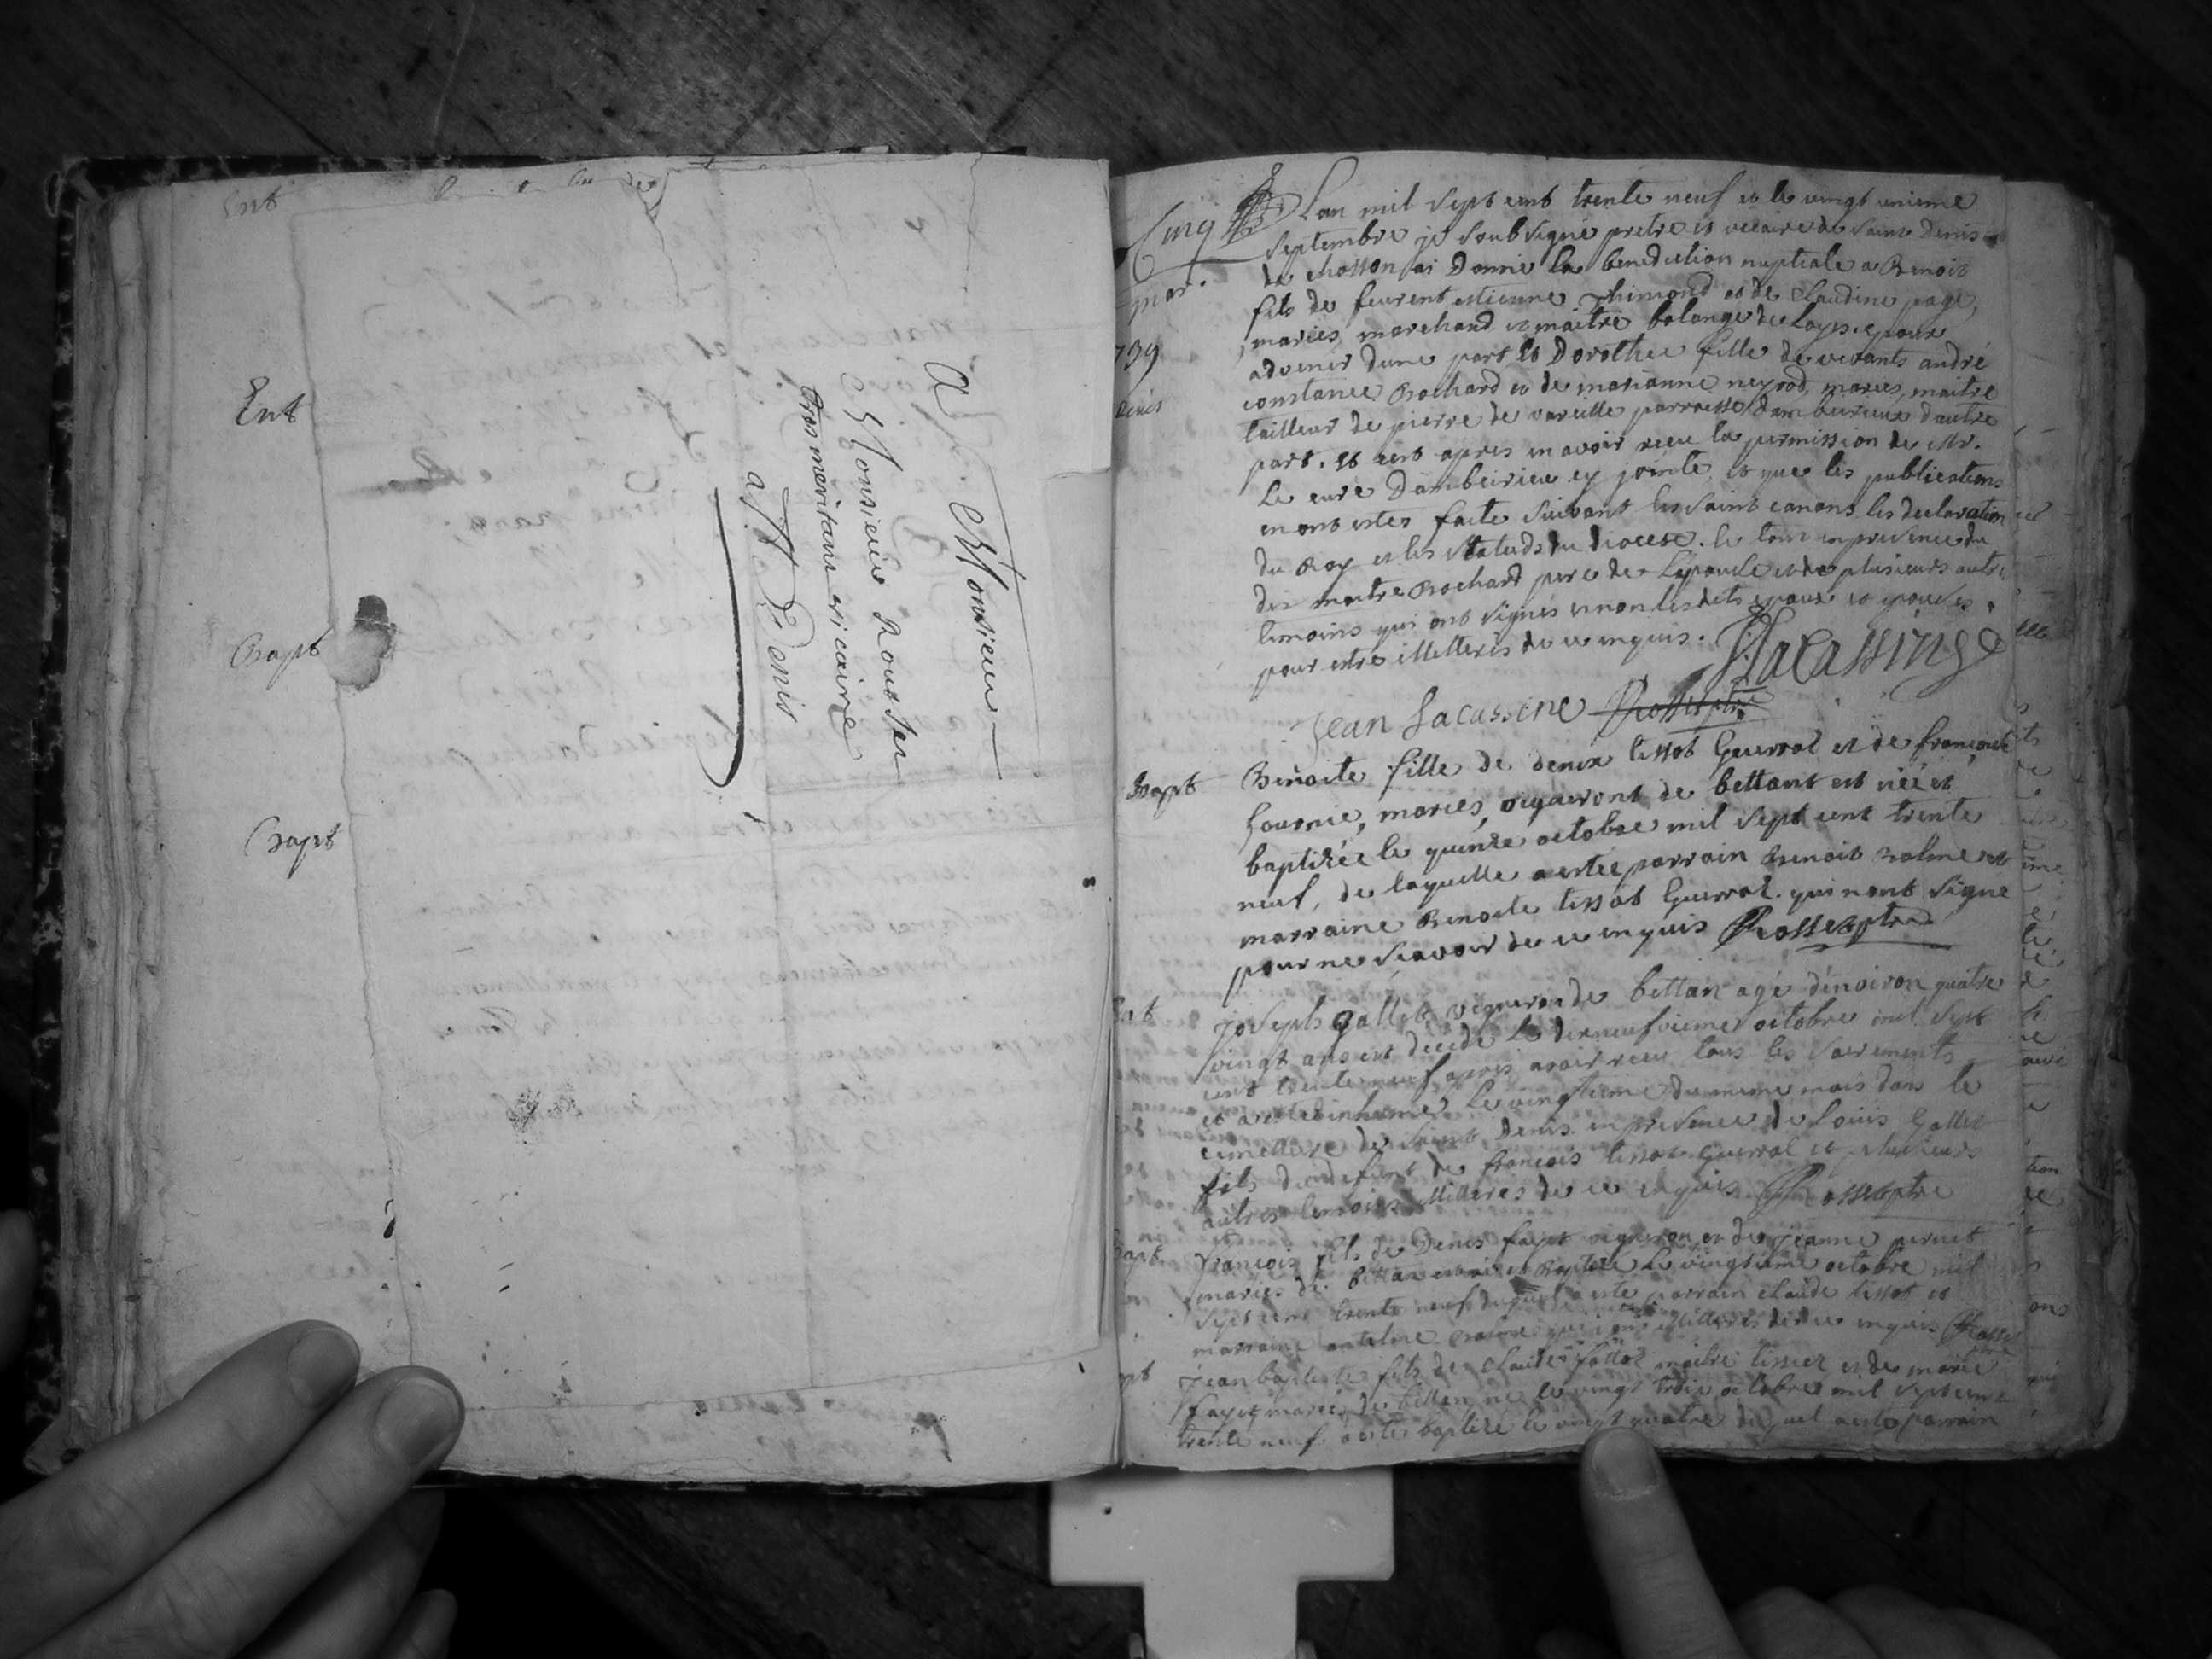 Ent
Ent
Bapt
Bapt
A Monsieur
Monsieur Rousset
tres meritant vicaire
a St Denis
Cinq
L'an mil sept cent trente neuf et le vingt unieme
mar.
septembre je soubsigné pretre et vicaire de Saint Denis
de chosson ai donné la benediction nuptiale a Benoit
fils de feu estienne Thimond et de Claudine page,
mariés, marchand et maitre
739
advenir dune part et Dorothee fille de vivants andré
Denis
constance Rochard et de marianne neyrod, mariés, maitre
tailleur de pierre de vareille parroisse dambeirieu dautre
part. et cest apres en avoir receu la permission de Mr.
Le curé Dambeirieu cy jointe, et que les publications
en ont estes faite suivant les saint canons les declaration
du Roy et les statuds du diocese. le tout en presence du
dit maitre Rochard pere de Lepouse et de plusieurs autre
temoins qui ont signés et non lesdits epoux et epouses
pour estre illetterés de ce enquis. Jacassinge
Jean Lacassine Rosset ptre
Bapt
Benoite fille de denix tissot Guerral et de francoise
fournié, mariés, vigneront de bettant est née et
baptisée le quinze octobre mil sept cent trente
neuf, de laquelle a estée parrain Benoit Balme et
marraine Benoite tissot Guerral. qui nont signe
pour ne scavoir de ce enquis Rosset ptre
Joseph Gallet vigneron de bettan agé dénviron quatre
vingt ans est decedé le dixneufvieme octobre mil sept
cent trente neuf apres avoir receu tous les sacrements
et a esté inhumé le vingtieme du meme mois dans le
cimettiere de saint Denis en presence de Louis Gallet
fils du defunt de francois tissot Guerral et plusieurs
autres temoins illiteres de ce enquis Rosset ptre
Bapt
francois fils de Denis fayet vigneron et de jeanne
mariés de bettan est né et baptisé le vingtieme octobre mil
sept cent trente neuf duquel a esté parrain claude tissot et
marraine antelme Balme qui sont illitterés de ce enquis Rosset
ptre
Jean baptiste fils de claude maitre tissier et de marie
fayet mariés de bettan né le vingt trois octobre mil sept cent
trente neuf a esté baptisé le vingt quatre duquel a esté parrain